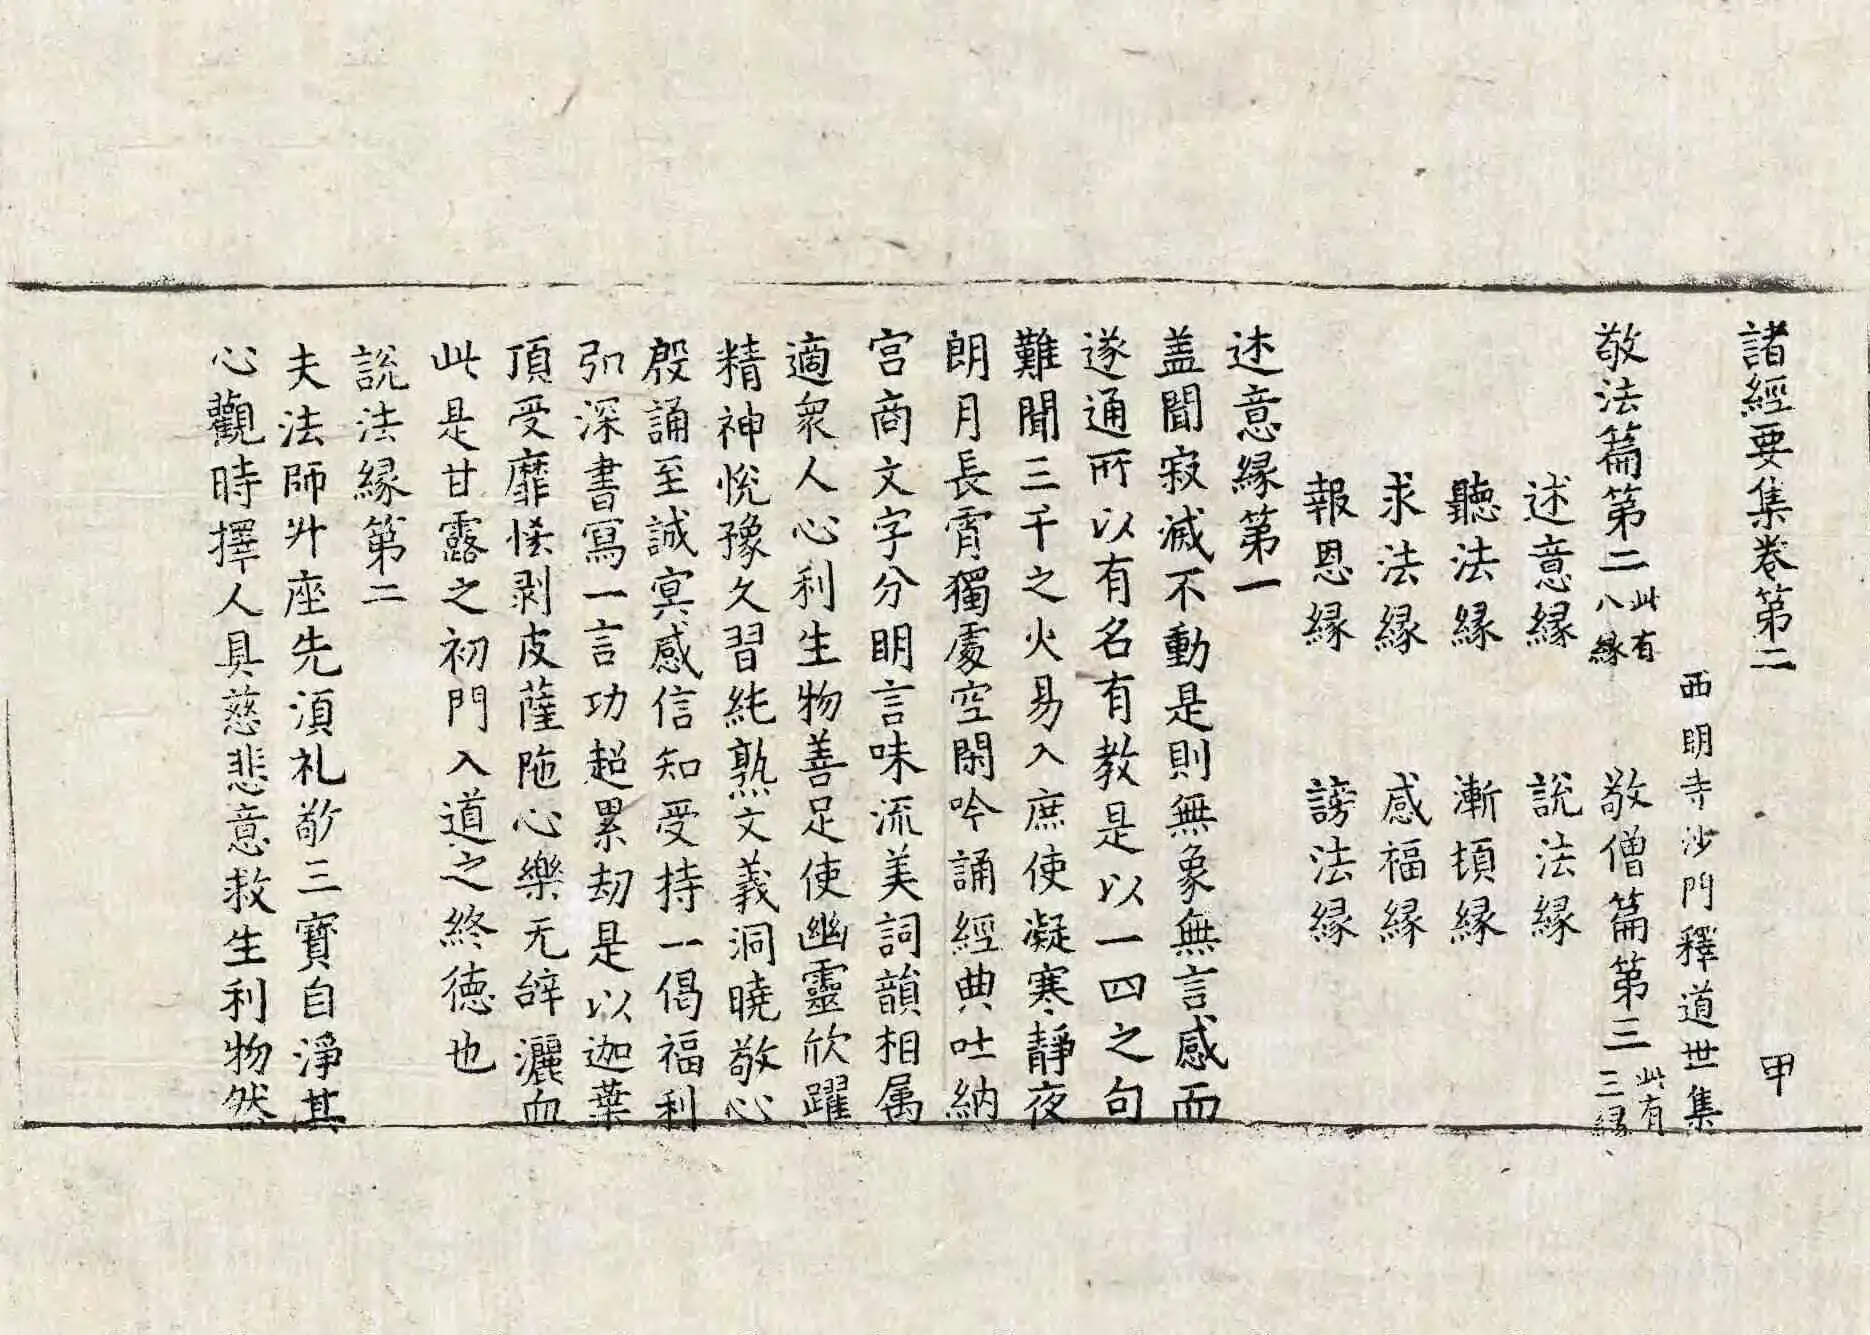 諸經要集卷第二　甲
西明寺沙門釋道世集
敬法篇第二此有八縁　敬僧篇第三此有三縁
述意縁　說法縁
聽法縁　漸頓縁
求法縁　感福縁
報恩縁　謗法縁
述意縁第一
盖聞寂滅不動是則無象無言感而
遂通所以有名有教是以一四之句
難聞三千之火易入庶使凝寒靜夜
朗月長霄獨處空閑吟誦經典吐納
宮商文字分明言味流美詞韻相属
適衆人心利生物善足使幽靈欣躍
精神悅豫久習純熟文義洞曉敬心
殷誦至誠冥感信知受持一偈福利
弘深書寫一言功超累劫是以迦葉
頂受靡恡剥皮薩陁心樂无辞灑血
此是甘露之初門入道之終德也
說法縁第二
夫法師升座先湏礼敬三寶自淨其
心觀時擇人具慈悲意救生利物然